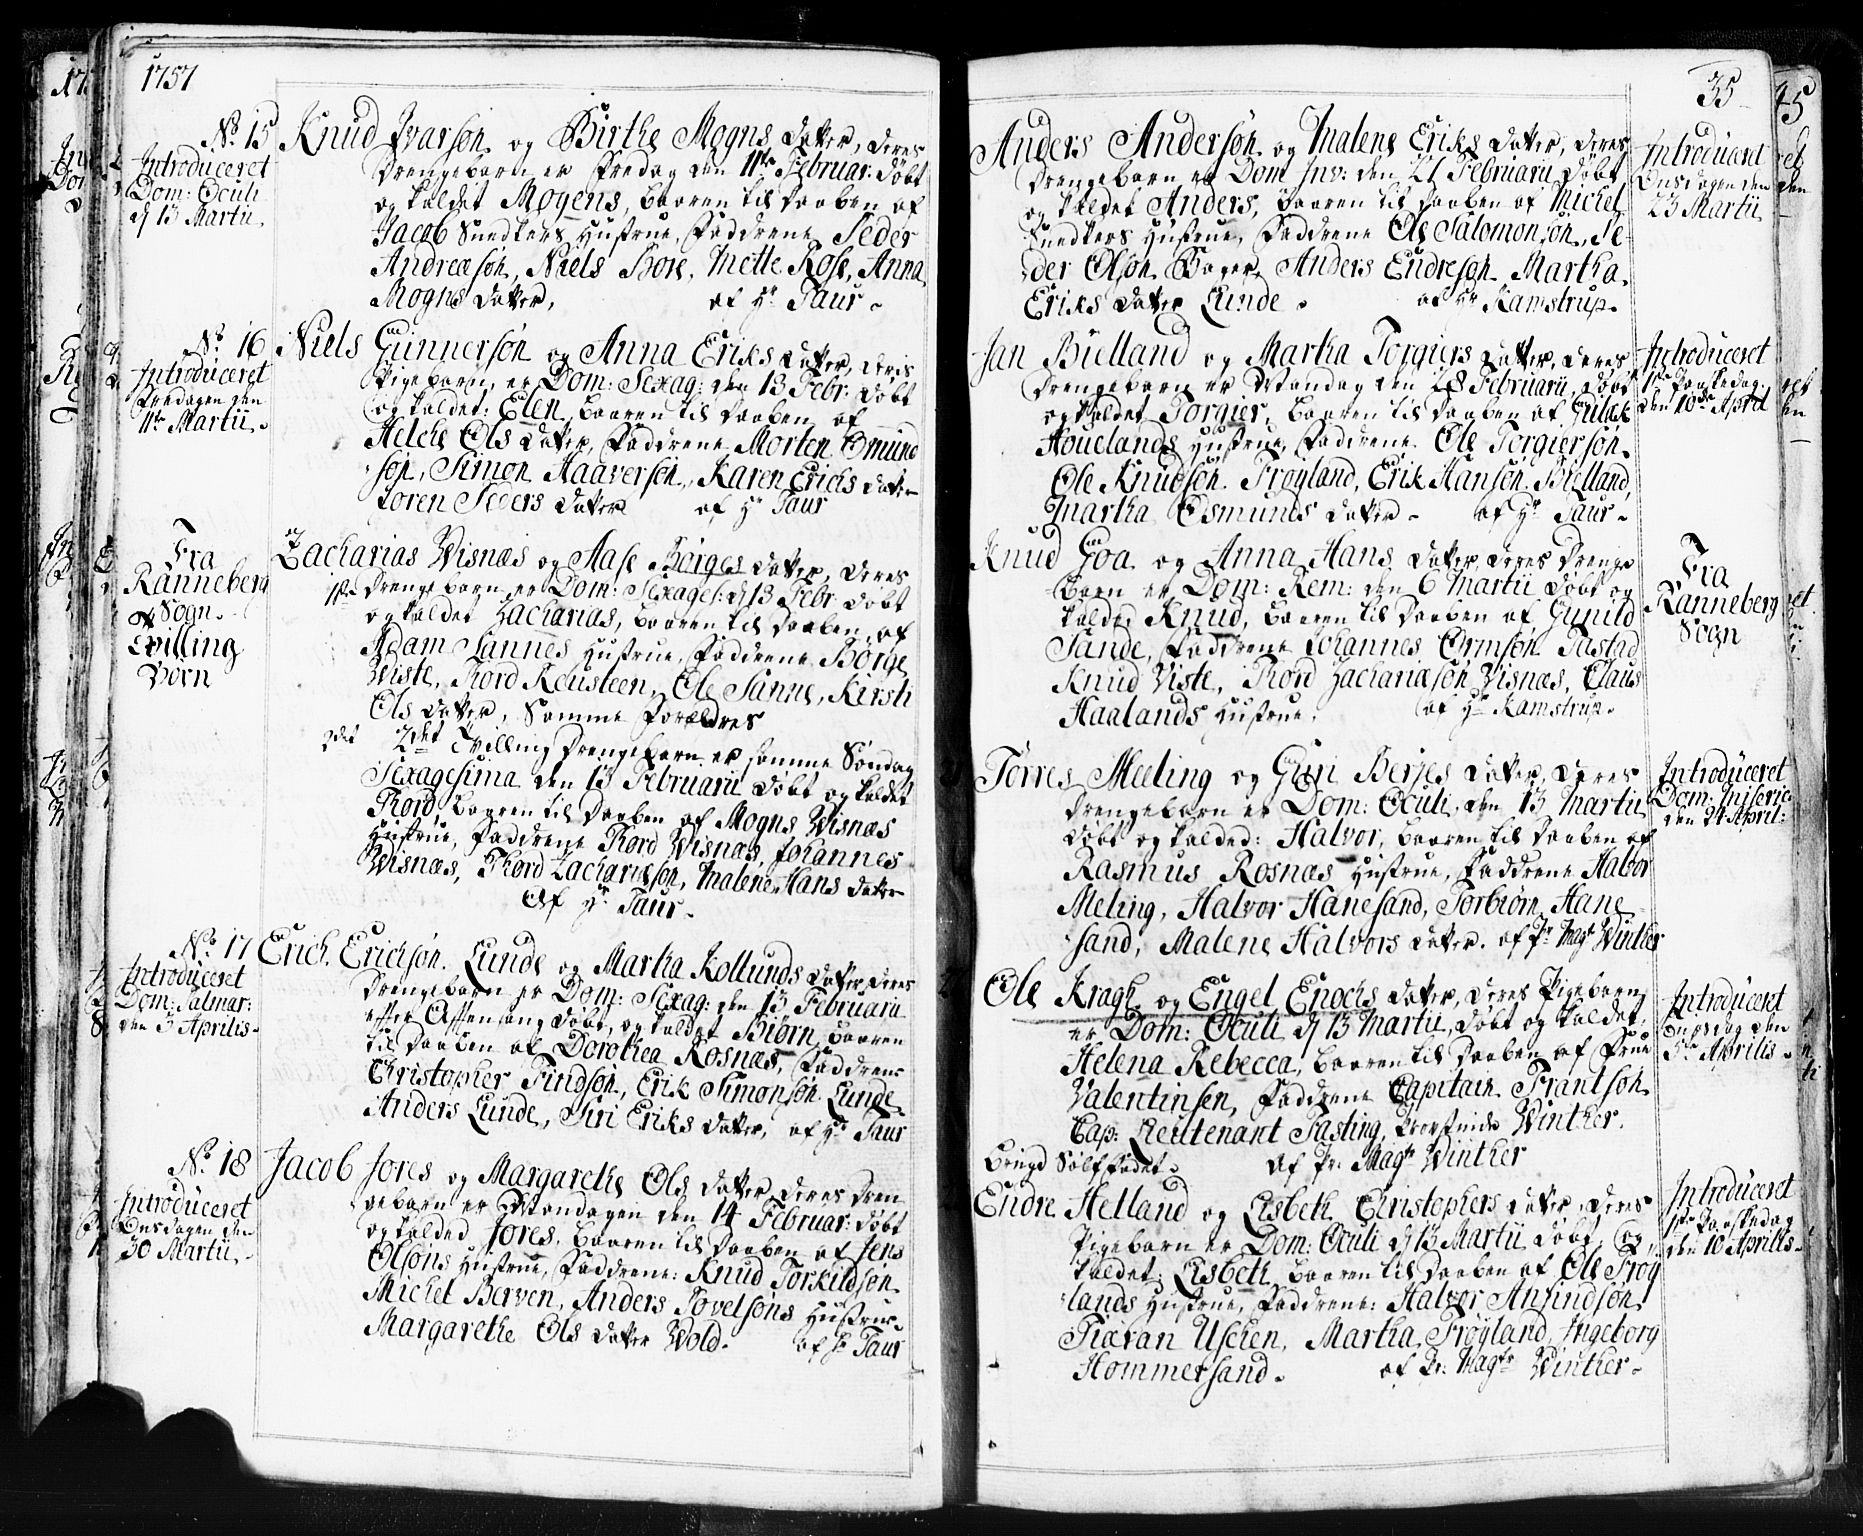 1757
No. 15
Introduceret
Dom: Oculi
d 13 Martii
Knud Ivarsøn og Birthe Mogns Datter, deres
Drengebarn er Fredag den 11te Februar: døbt
og kaldet Mogens, baaren til Daaben af
Jacob Snedkers Hustrue, Faddrene Peder
Andreæsøn, Niels Bore, Mette Rose, Anna
Mogns Datter, af Hr Taur.
No. 16
Introduceret
Fredagen den
11te Martii.
Niels Gunnersøn og Anna Eriks Datter, deris
Pigebarn, er Dom: Sexag: den 13 Febr: døbt
og kaldet: Elen, baaren til Daaben af
Helche Ols Datter, Faddrene Morten Omund
søn, Simon Haaversøn, Karen Erichs Datter
Loren Peders Datter af Hr Taur
Fra
Ranneberg
Sogn.
Tvilling
Børn
Zacharias Wisnæs og Aase Børges Datter, deres
1ste Drengebarn er Dom: Sexages: d 13 Febr: døbt
og kaldet Zacharias, baaren til Daaben af
Adam Sannes Hustrue, Faddrene Børge
Wiste, Thord Reusteen, Ole Sanne, Kirsti
Ols Datter, Samme Forældres
2det 2det Tvilling Drengebarn er samme Søndag
Sexagesima den 13 Februarii døbt og kaldet
Thord, baaren til Daaben af Mogns Wisnæs
Hustrue, Faddrene Thord Wisnæs, Johannes
Wisnæs, Thord Zachariæsøn, Malene Hans Datter
Af Hr Taur.
No. 17
Introduceret
Dom: Palmar:
den 3 Aprilis.
Erich Erichsøn Lunde og Martha Kollunds Datter, deres
Drengebarn er Dom: Sexag: den 13 Februarii
efter Aftensang døbt, og kaldet Biørn, baaren
til Daaben af Dorothea Rosnæs, Faddrene
Christopher Findsøn, Erik Simonsøn Lunde
Anders Lunde, Siri Eriks Datter, af Hr Taur
No. 18
Introduceret
Onsdagen den
30 Martii.
Jacob Jores og Margarethe Ols Datter, deres Dren
gebarn er Mandagen den 14 Februar: døbt
og kaldet Jores, baaren til Daaben af Jens
Olsøns Hustrue, Faddrene: Knud Torkildsøn
Michel Berven, Anders Povelsøns Hustrue
Margarethe Ols Datter Wold. af Hr Taur
35
Anders Andersøn og Malene Eriks Datter, deres
Drengebarn er Dom Inv: den 27 Februarii døbt
og kaldet Anders, baaren til Daaben af Michel
Snedkers Hustrue, Faddrene Ole Salomonsøn, Pe-
der Olsøn Bager, Anders Endresøn, Martha
Eriks Datter Lunde. af Hr Ramstrup.
Introduceret
Onsdagen den
23 Martii
Jan Bielland og Martha Torgiers Datter, deres
Drengebarn er Mandag den 28 Februarii, døbt
og kaldet Torgier, baaren til Daaben af Gulak
Houelands Hustrue, Faddrene. Ole Torgiersøn.
Ole Knudsøn Frøyland, Erik Hansøn Bielland,
Martha Osmunds Datter. af Hr Taur.
Introduceret
1ste Paaskedag.
den 10de April
Knud Goa og Anna Hans Datter, deres Drenge
barn er Dom: Rem: den 6 Martii døbt og
kaldet Knud, baaren til Daaben af Gunild
Sande, Faddrene Johannes Ormsøn Tastad
Knud Viste, Thord Zachariæsøn Visnæs, Claus
Haalands Hustrue, af Hr Ramstrup.
Fra
Ranneberg
Sogn
Torres Meeling og Guri Berjes Datter, deres
Drengebarn er Dom: Oculi, den 13 Martii
døbt og kaldet: Halvor, baaren til Daaben af
Rasmus Rosnæs Hustrue, Faddrene Halvor
Meling, Halvor Hanesand, Torbiørn Hane
sand, Malene Halvors Datter. af Pr: Magr Winther
Introduceret
Dom: Miseric:
den 24 April:
Ole Kragh og Engel Enochs Datter, deres Pigebarn
er Dom: Oculi d 13 Martii, døbt og kaldet
Helena Rebecca, baaren til Daaben af Frue
Valentinsen, Faddrene Capitain Frantsøn
Cap: Leutenant Tasting, Provstinde Winther.
Bengd Sølffadet. Af Pr: Magr Winther
Introduceret
Onsdag den
Aprilis.
Endre Helland og Lisbeth Christophers Datter, deres
Pigebarn er Dom: Oculi d 13 Martii døbt, og
kaldet: Lisbeth, baaren til Daaben af Ole Frøy
lands Hustrue, Faddrene: Halvor Anfindsøn
Tiæran Uschen, Martha Frøyland, Ingeborg
Hommersand. af Pr: Magr Winther.
Introduceret
1ste Paaskedag
den 10 Aprilis.